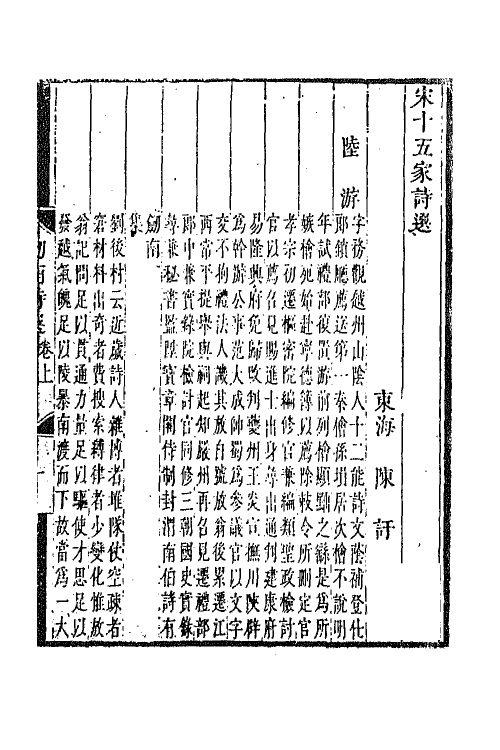 宋十五家詩選
東海 陳訏
陸游
字務觀越州山陰人十二能詩文蔭補登仕
郎鎖廳薦送第一秦檜孫塤居次檜不說明
年試禮部復置游前列檜顯黜之繇是爲所
嫉檜死始赴寧德簿以薦除敕令所刪定官
孝宗初遷樞密院編修官兼編類聖政檢討
官以薦召見賜進士出身尋出通判建康府
易隆興府免歸改判夔州王炎宣撫川陝辟
爲幹辦公事范大成帥蜀爲參議官以文字
交不拘禮法人譏其放自號放翁後累遷江
西常平提舉與祠起知嚴州再召見遷禮部
郎中兼實錄院檢討官同修三朝國史實錄
尋兼秘書監陞寶章閣待制封渭南伯詩有
劒南
集
劉後村云近歲詩人雜博者堆隊仗空疎者
窘材料出奇者費搜索縛律者少變化惟放
翁記問足以貫通力量足以驅使才思足以
發越氣魄足以陵暴南渡而下故當爲一大
劒南詩選 卷上 一